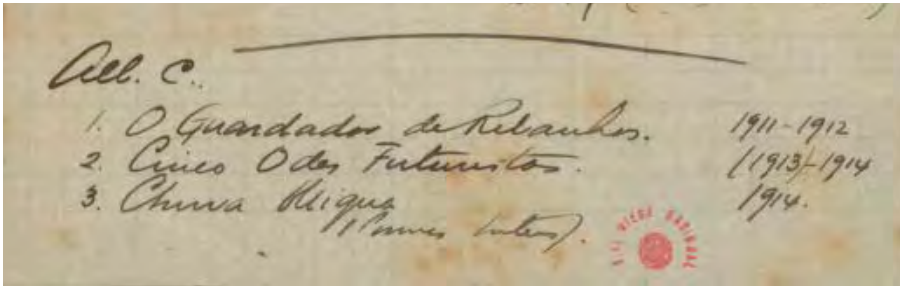 Alb. C..
1. O Guardador de Rebanhos. 1911-1912
2. Cinco Odes Futuristas. (1913)-1914
3. Chuva Oblíqua 1914.
(Poemas Inters).